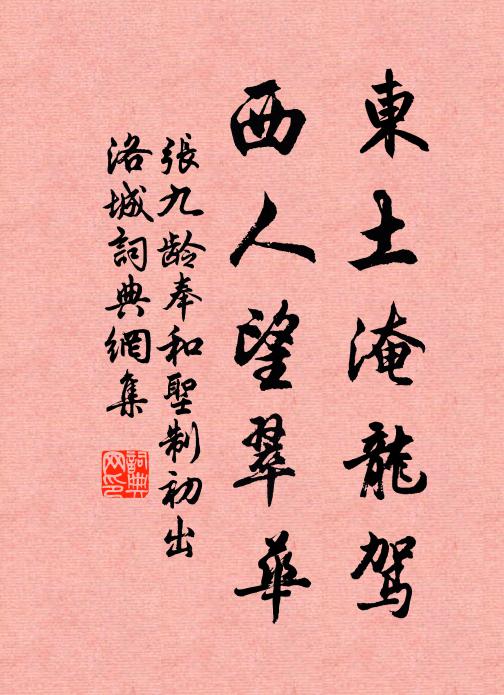 東土淹龍駕
西人望翠華
張九龄奉和聖制初出
洛城詞典網集
詞典网印